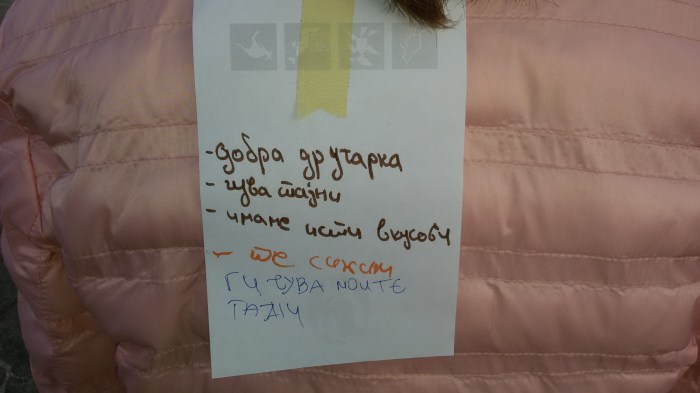 - добра другарка
- чува тајни
- имаме исти вкусови
- те сакам
ГИ ЧУВА МОИТЕ
ТАЈНИ